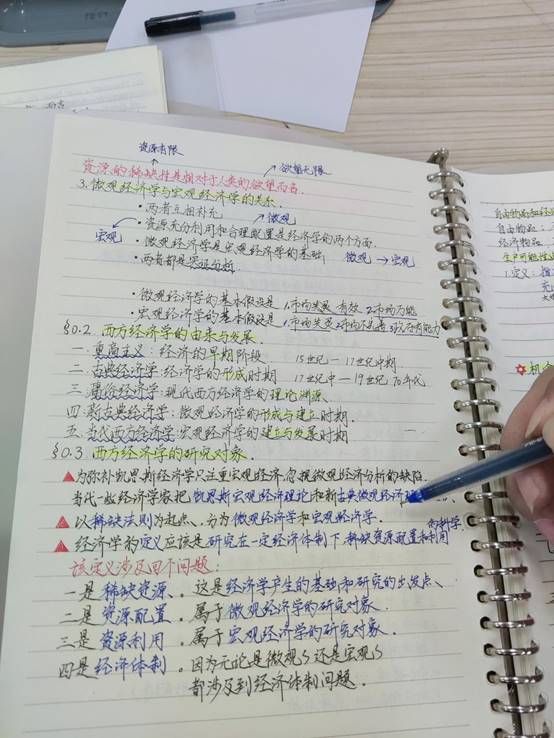 资源有限
资源的稀缺性是相对于人类的欲望而言
欲望无限
3.微观经济学与宏观经济学的关系
·两者互相补充
微观
宏观
·资源充分利用和合理配置是经济学的两个方面.
·微观经济学是宏观经济学的基础; 微观→宏观
·两者都是实证分析.
·微观经济学的基本假设是 1.市场出清 有效 2.市场万能
·宏观经济学的基本假设是 1.市场失灵 2.市场不完善 政府有能力
§0.2. 西方经济学的由来与发展
一.重商主义:经济的早期阶段 15世纪—17世纪中期
二.古典经济学:经济学的形成时期 17世纪中—19世纪70年代
三.庸俗经济学:现代西方经济学的理论渊源
四.新古典经济学:微观经济学的形成与建立时期.
五.当代西方经济学:宏观经济学的建立与发展时期
§0.3. 西方经济学的研究对象.
为弥补凯恩斯经济学只注重宏观经济.忽视微观经济分析的缺陷.
当代一些经济学家把凯恩斯宏观经济理论和新古典微观经济
以稀缺法则为起点、分为微观经济学和宏观经济学.
经济学的定义应该是研究在一定经济体制下稀缺资源配置和利用的科学
该定义涉及四个问题:
一是稀缺资源、这是经济学产生的基础和研究的出发点、
二是资源配置.属于微观经济学的研究对象.
三是资源利用.属于宏观经济学的研究对象.
四是经济体制.因为无论是微观S还是宏观S
都涉及到经济体制问题.
自由物品
经济物品
1.定义: